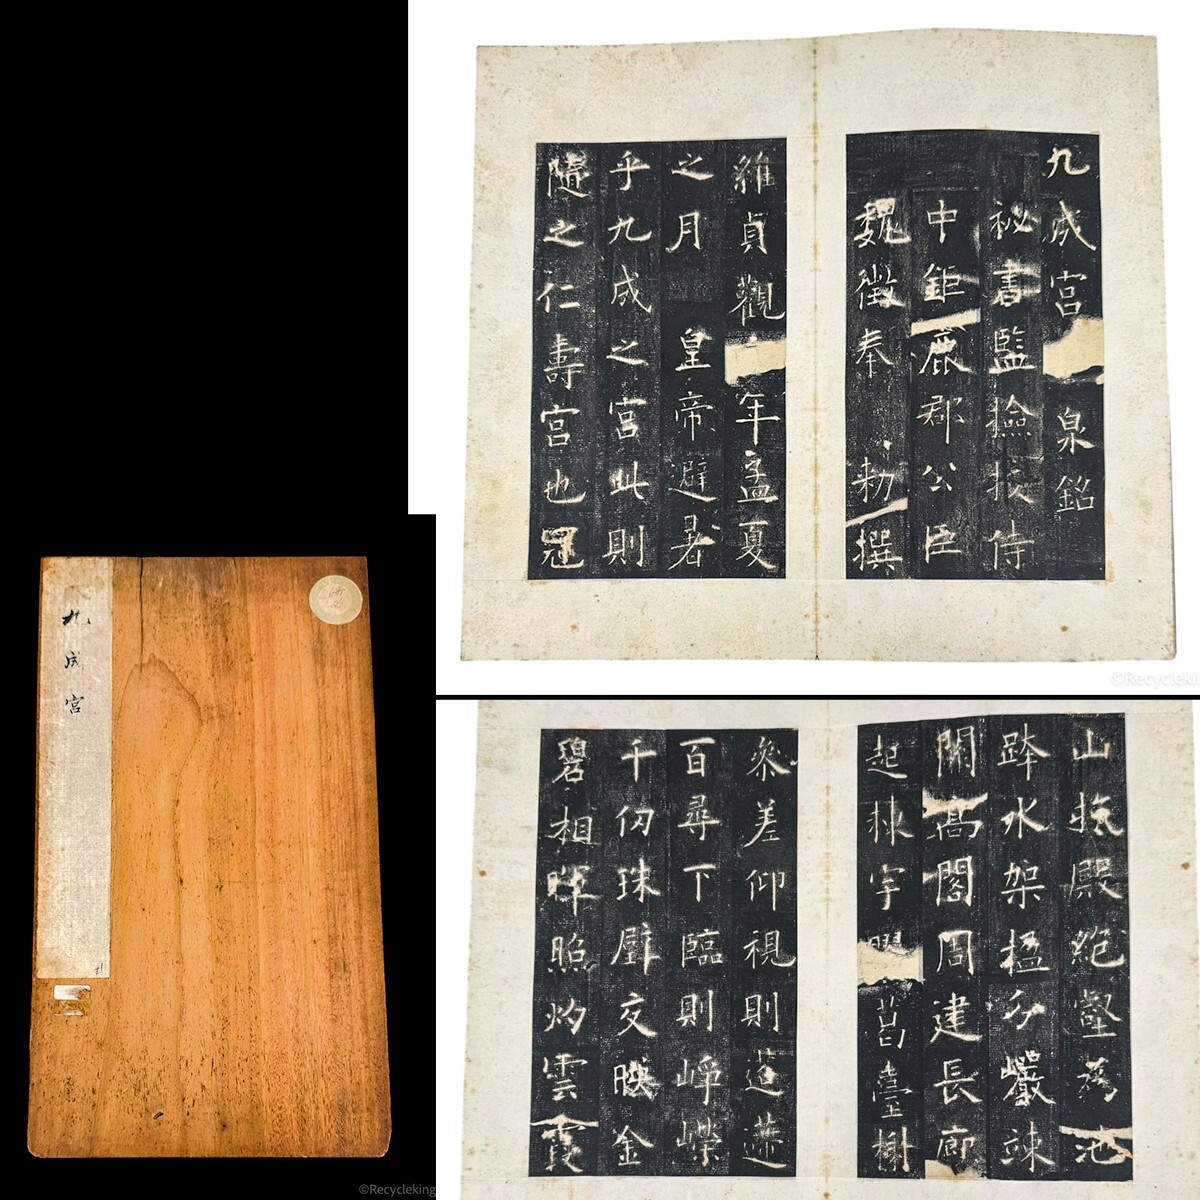 九成宮
九成宮 泉銘
祕書監撿挍侍
中鉅鹿郡公臣
魏徵奉 勑撰
維貞觀 年孟夏
之月 皇帝避暑
乎九成之宮此則
隨之仁壽宮也冠
山抗殿絕壑為池
跨水架楹分巖竦
闕高閣周建長廊
起棟宇 葛臺榭
參差仰視則迢遰
百尋下臨則崢嶸
千仞珠璧交暎金
碧相暉照灼雲霞
©Recycleking
©Recyclekin